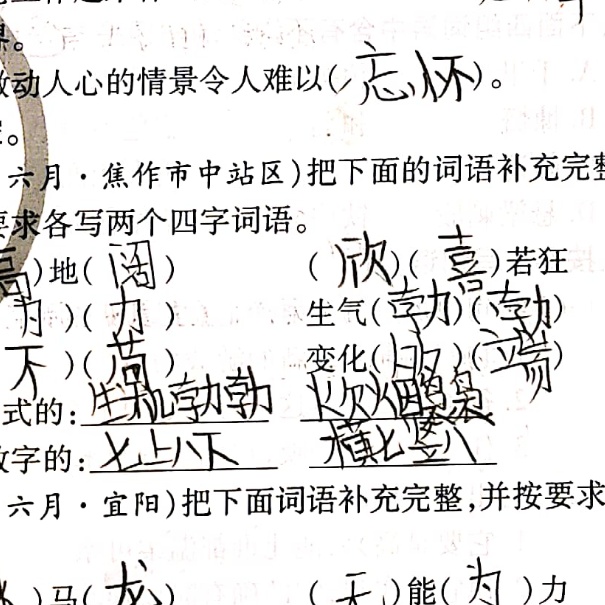 激动人心的情景令人难以(忘怀)。
六月·焦作市中站区)把下面的词语补充完整
要求各写两个四字词语。
高)地(阔) (欣)(喜)若狂
为)(力) 生气(勃)(勃)
)( ) 变化( )(端)
式的:生机勃勃 炊烟袅袅
数字的:七上八下 横七竖八
六月·宜阳)把下面词语补充完整,并按要求
)马(龙) (无)能(为)力